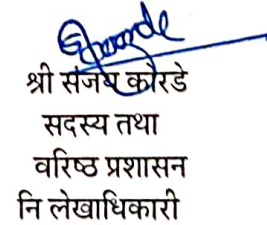 श्री संजय कोरडे
सदस्य तथा
वरिष्ठ प्रशासन
नि लेखाधिकारी